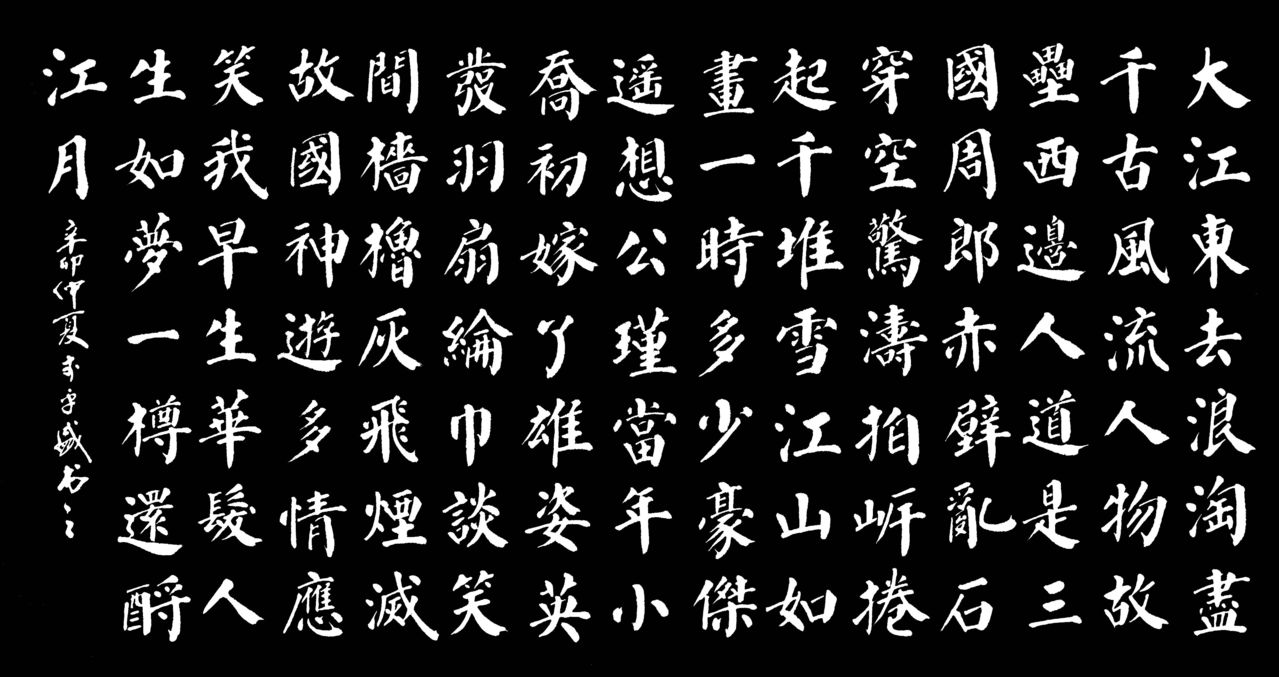 大江東去浪淘盡
千古風流人物故
壘西邊人道是三
國周郎赤壁亂石
穿空驚濤拍岸捲
起千堆雪江山如
畫一時多少豪傑
遥想公瑾當年小
喬初嫁了雄姿英
發羽扇綸巾談笑
間檣櫓灰飛煙滅
故國神遊多情應
笑我早生華髮人
生如夢一樽還酹
江月
辛卯仲夏